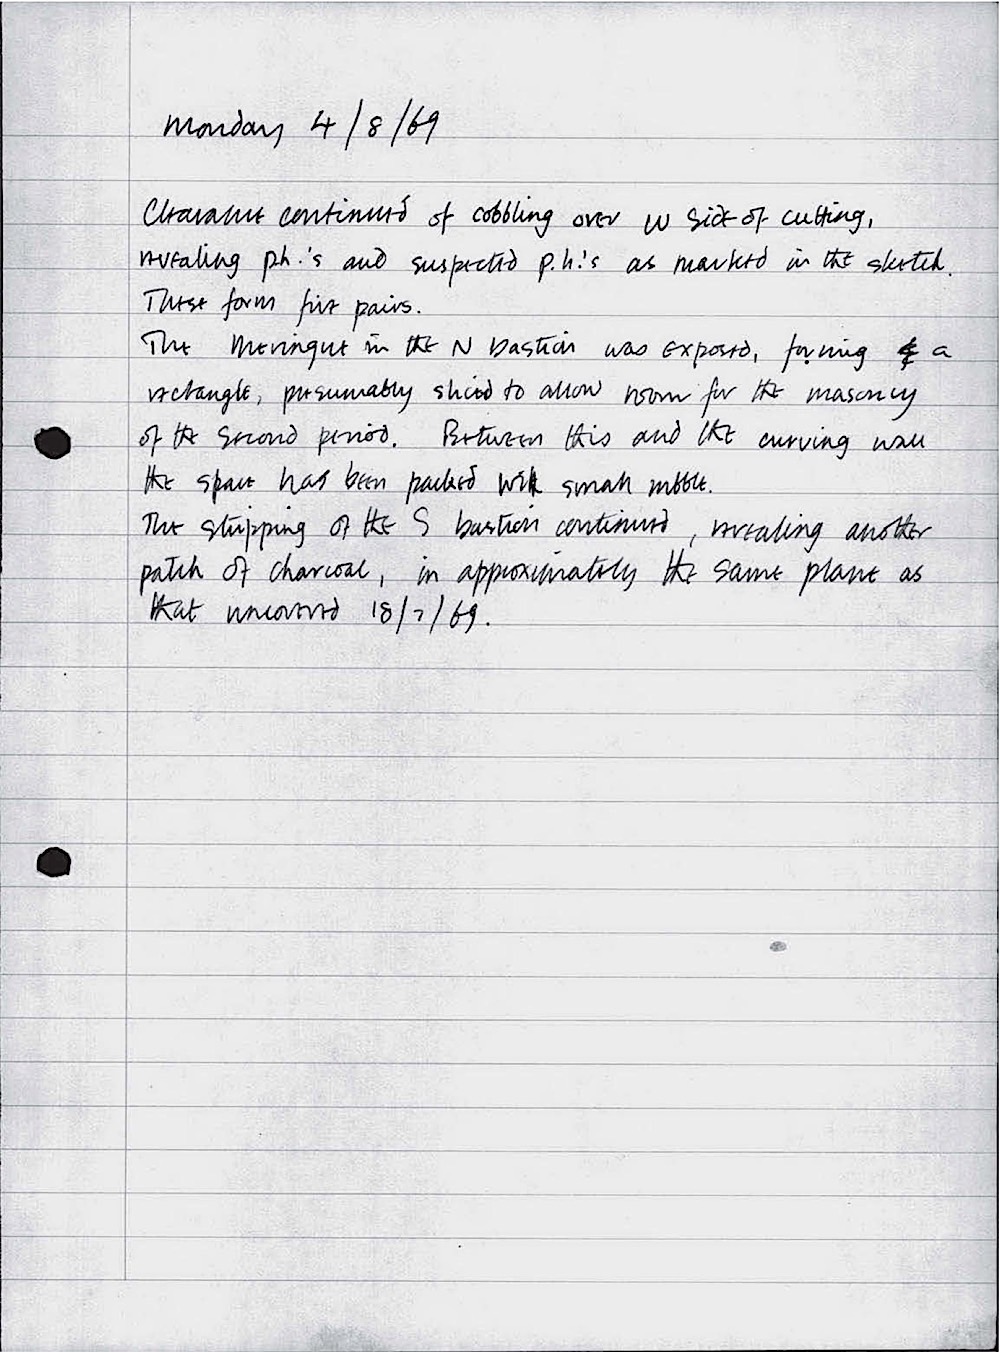 Monday 4/8/69
Clearance continued of cobbling over W side of cutting,
revealing ph.'s and suspected p.h.'s as marked in the sketch.
These form five pairs.
The Meringue in the N bastion was exposed, forming a
rectangle, presumably sliced to allow room for the masonry
of the second period. Between this and the curving wall
the space has been packed with small rubble.
The stripping of the S bastion continued, revealing another
patch of charcoal, in approximately the same plane as
that uncovered 18/7/69.